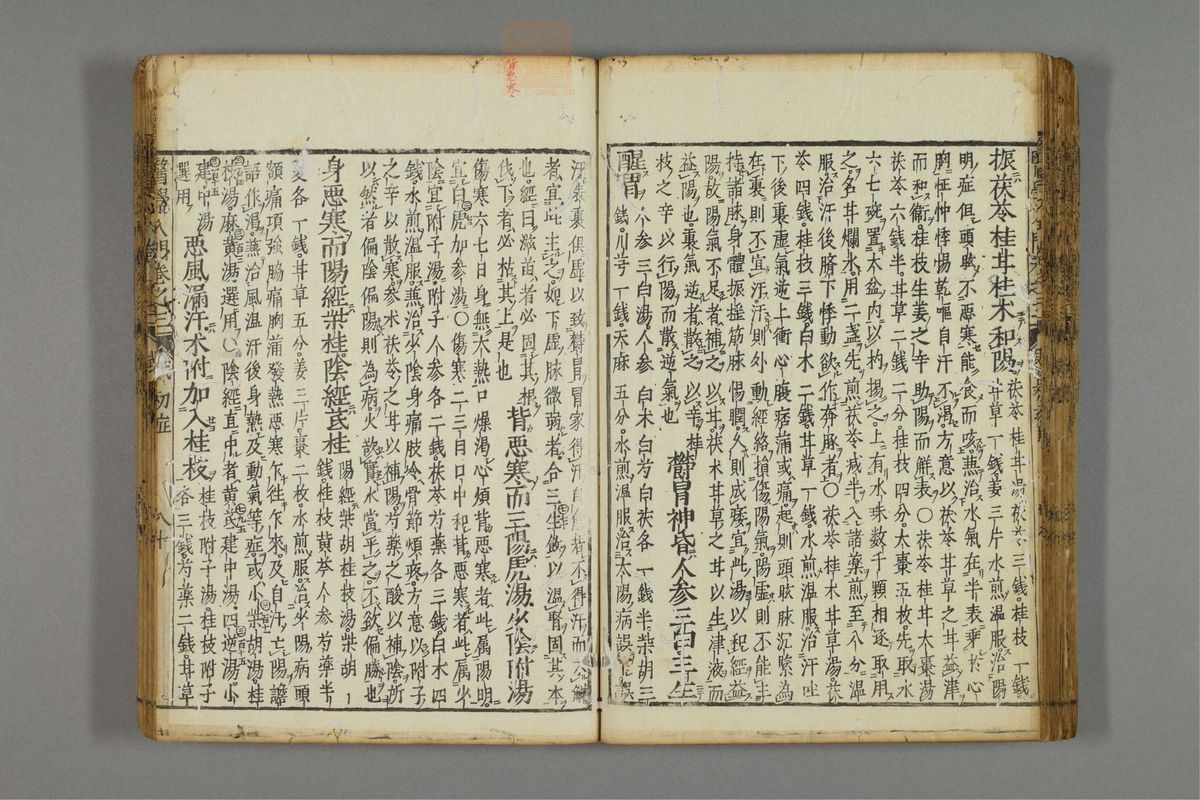 振茯苓桂甘桂木和陽 茯苓桂甘湯茯苓三錢桂枝一錢甘草一錢姜三片水煎温服治陽
明症但頭眩不悪寒能食而咳兼治水氣在半表乘於心
胸怔忡悸惕乾嘔自汗不渴方意以茯苓甘草之甘益津
而和衛桂枝生姜之辛助陽而觧表○茯苓桂甘大棗湯
茯苓六錢半甘草二錢二分桂枝四分大棗五枚先取水
六七碗置木盆内以杓揚之上有水珠数千顆相逐取用
之名甘爛水用二盞先煎茯苓减半入諸藥煎至八分温
服治汗後臍下悸動欲作奔豚者○茯苓桂木甘草湯茯
苓四錢桂枝三錢白木二錢甘草一錢水煎温服治汗吐
下後裏虚氣逆上衝心腹痞滿或痛起則頭眩脉沉緊為
在裏則不宜汗汗則外動經絡損傷陽氣陽虚則不能主
持諸脉身體振揺筋脉惕瞤久則成痿宜此湯以和經益
陽故陽氣不足者補之以甘茯木甘草之甘以生津液而
益陽也裏氣逆者散之以辛桂
枝之辛以行陽而散逆氣也 欝冒神昏人参三白三生
醒冒 人参三白湯人参白木白芍白茯各一錢半柴胡三錢川芎一錢天麻五分水煎温服治太陽病誤下誤
汗表裏俱虚以致欝冒冒家得汗自觧若不得汗而不觧
者宜此主之如下虚脉微弱者合三生飲以温腎固其本
也經曰滋苗者必固其根
伐下者必枯其上是也 背悪寒而三陽虎湯少陰附湯
傷寒六七日身無大熱口燥渴心煩背悪寒者此属陽明
宜白虎加参湯○傷寒二三日口中和背悪寒者此属少
陰宜附子湯附子人参各二錢茯苓芍藥各三錢白木四
錢水煎温服兼治少陰身痛肢冷骨節煩疼方意以附子
之辛以散寒参木茯苓之甘以補陽芍藥之酸以補陰所
以然者偏陰偏陽則為病火欲實水當平之不欲偏勝也
身悪寒而陽經柴桂陰經芪桂 陽經柴胡桂枝湯柴胡一錢桂枝黄芩人参芍藥半
夏各一錢甘草五分姜三片棗二枚水煎服治少陽病頭
額痛項強脇痛胸滿發熱悪寒乍往乍來及自汗亡陽譫
語作渴兼治風温汗後身熱及動氣等症或小柴胡湯桂
枝湯麻黄湯選用○陰經直中者黄芪建中湯四逆湯小
建中湯
選用 悪風漏汗木附加入桂枝 桂枝附子湯桂枝附子各三錢芍藥二錢甘草
背悪寒